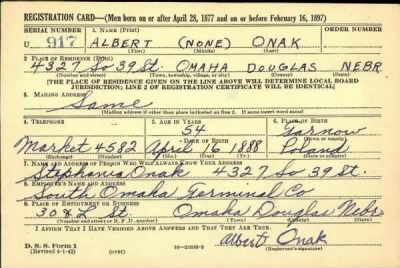 REGISTRATION CARD—(Men born on or after April 28, 1877 and on or before February 16, 1897)
SERIAL NUMBER 1. NAME (Print) ORDER NUMBER
U 917 ALBERT (NONE) ONAK
(First) (Middle) (Last)
2. PLACE OF RESIDENCE (Print)
4327 So 39 St. OMAHA DOUGLAS NEBR
(Number and street) (Town, township, village, or city) (County) (State)
[THE PLACE OF RESIDENCE GIVEN ON THE LINE ABOVE WILL DETERMINE LOCAL BOARD
JURISDICTION; LINE 2 OF REGISTRATION CERTIFICATE WILL BE IDENTICAL]
3. MAILING ADDRESS
Same
[Mailing address if other than place indicated on line 2. If same insert word same]
4. TELEPHONE 5. AGE IN YEARS 6. PLACE OF BIRTH
54 Tarnow
DATE OF BIRTH (Town or county)
Market 4582 April 16 1888 Poland
(Exchange) (Number) (Mo.) (Day) (Yr.) (State or country)
7. NAME AND ADDRESS OF PERSON WHO WILL ALWAYS KNOW YOUR ADDRESS
Stephania Onak 4327 So 39 St.
8. EMPLOYER'S NAME AND ADDRESS
South Omaha Terminal Co
9. PLACE OF EMPLOYMENT OR BUSINESS
30 & Z St. Omaha Douglas Nebr
(Number and street or R. F. D. number) (Town) (County) (State)
I AFFIRM THAT I HAVE VERIFIED ABOVE ANSWERS AND THAT THEY ARE TRUE.
D. S. S. Form 1
(Revised 4-1-42) (over) 16—21630-2 Albert Onak
(Registrant's signature)